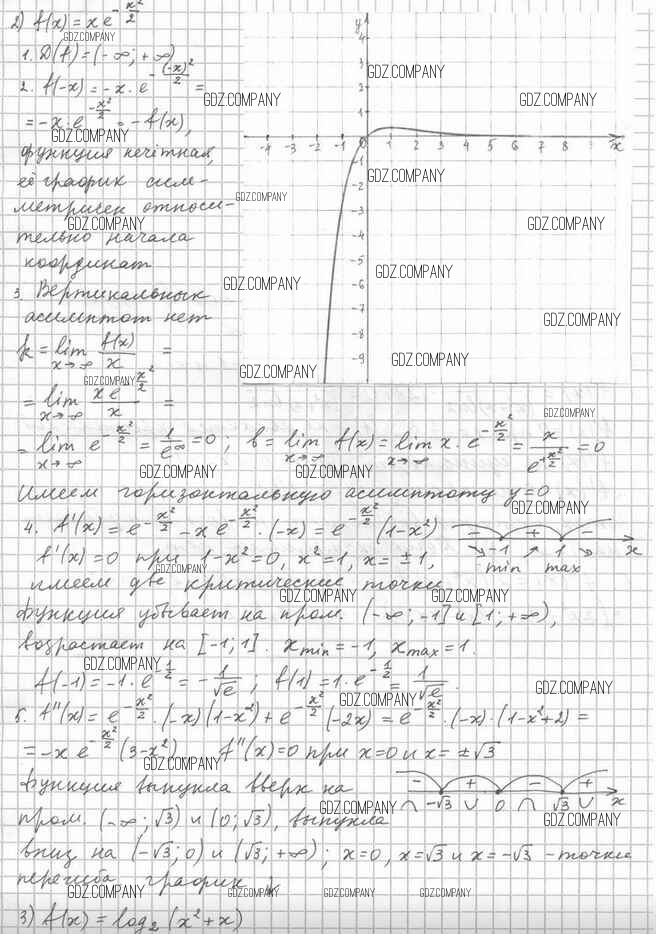 2) f(x) = x e^{-x²/2}
1. D(f) = (-∞; +∞)
2. f(-x) = -x · e^{-(-x)²/2} =
= -x · e^{-x²/2} = -f(x),
функция нечётная,
её график сим-
метричен относи-
тельно начала
координат
3. Вертикальных
асимптот нет
k = lim_{x→∞} f(x)/x =
= lim_{x→∞} x e^{-x²/2}/x =
= lim_{x→∞} e^{-x²/2} = 1/e^∞ = 0; b = lim_{x→∞} f(x) = lim_{x→∞} x · e^{-x²/2} = x/e^{x²/2} = 0
Имеем горизонтальную асимптоту y = 0
4. f'(x) = e^{-x²/2} - x e^{-x²/2} · (-x) = e^{-x²/2} (1-x²)
f'(x) = 0 при 1-x² = 0, x² = 1, x = ±1,
имеем две критические точки
Функция убывает на пром. (-∞; -1] и [1; +∞),
возрастает на [-1; 1]. x_min = -1, x_max = 1.
f(-1) = -1 · e^{-1/2} = -1/√e; f(1) = 1 · e^{-1/2} = 1/√e.
5. f''(x) = e^{-x²/2} · (-x)(1-x²) + e^{-x²/2} (-2x) = e^{-x²/2} · (-x) · (1-x²+2) =
= -x e^{-x²/2} (3-x²) f''(x) = 0 при x = 0 и x = ±√3
Функция выпукла вверх на
пром. (-∞; √3) и (0; √3), выпукла
вниз на (-√3; 0) и (√3; +∞); x = 0, x = √3 и x = -√3 - точки
перегиба график
3) f(x) = log₂ (x² + x)
y
4
2
1
-4 -3 -2 -1 0 1 2 3 4 5 6 7 8 x
-1
-2
-3
-4
-5
-6
-7
-8
-9
- + -
-1 1 x
min max
- + - +
-√3 0 √3 x
GDZ.COMPANY
GDZ.COMPANY
GDZ.COMPANY
GDZ.COMPANY
GDZ.COMPANY
GDZ.COMPANY
GDZ.COMPANY
GDZ.COMPANY
GDZ.COMPANY
GDZ.COMPANY
GDZ.COMPANY
GDZ.COMPANY
GDZ.COMPANY
GDZ.COMPANY
GDZ.COMPANY
GDZ.COMPANY
GDZ.COMPANY
GDZ.COMPANY
GDZ.COMPANY
GDZ.COMPANY
GDZ.COMPANY
GDZ.COMPANY
GDZ.COMPANY
GDZ.COMPANY
GDZ.COMPANY
GDZ.COMPANY
GDZ.COMPANY
GDZ.COMPANY
GDZ.COMPANY
GDZ.COMPANY
GDZ.COMPANY
GDZ.COMPANY
GDZ.COMPANY